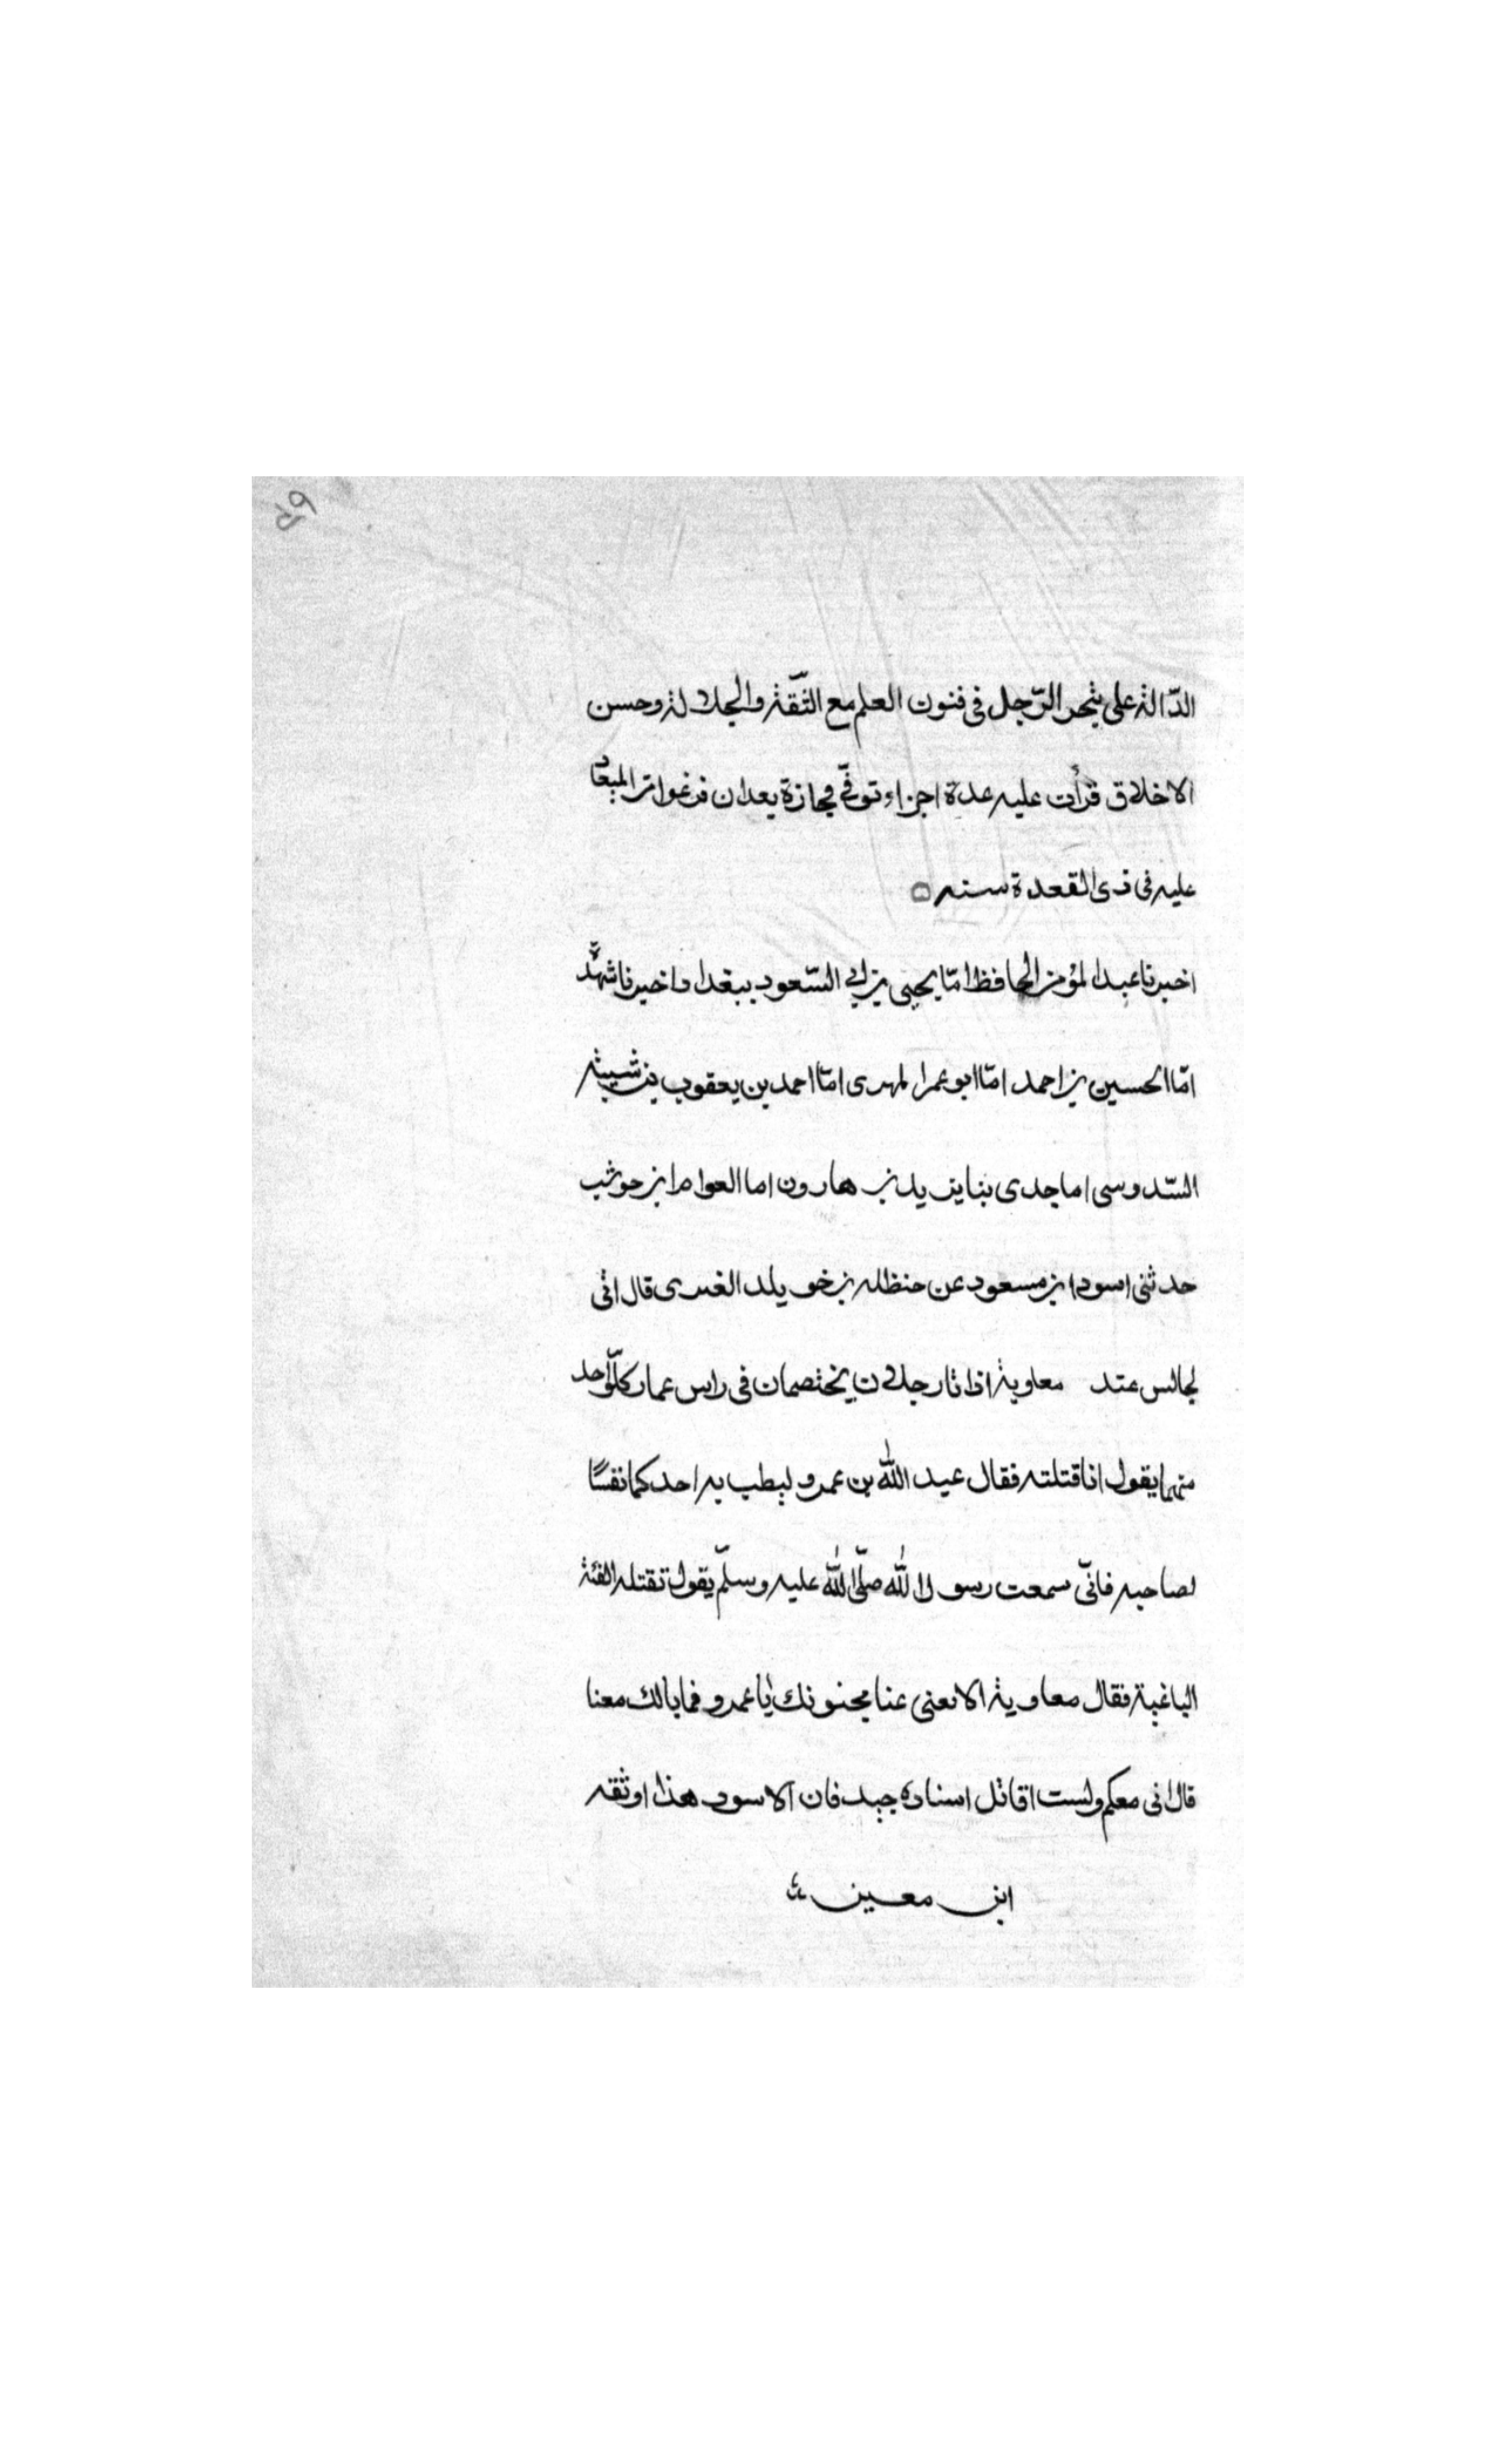 الدّالة على تبحر الرّجل فى فنون العلم مع الثّقة والجلالة وحسن
الاخلاق قرأت عليه عدة اجزاء توفّى مجازة بعدان
عليه فى ذى القعدة سنه
اخبرنا عبد المؤمن الحافظ امّا يحيى بن ابى السّعود ببغداد اخبرنا شهدة
امّا الحسين بن احمد امّا ابو عمر المهدى امّا احمد بن يعقوب بن شيبة
السّدوسى اما جدى بنا يزيد بن هارون اما العوام ابن حوشب
حدثنى اسود ابن مسعود عن حنظله بن خويلد الغنرى قال انى
لجالس عند معاوية اذا تار رجلان يختصمان فى راس عمار كلّ واحد
منهما يقول انا قتلته فقال عبد الله بن عمرو ليطب به احدكما نفسًا
لصاحبه فانّى سمعت رسول الله صلّى الله عليه وسلّم يقول تقتله الفئة
الباغية فقال معاوية الا تعنى عنا مجنونك يا عمرو فما بالك معنا
قال انى معكم ولست اقاتل اسناده جيد فان الاسود هذا وثقه
ابن معين